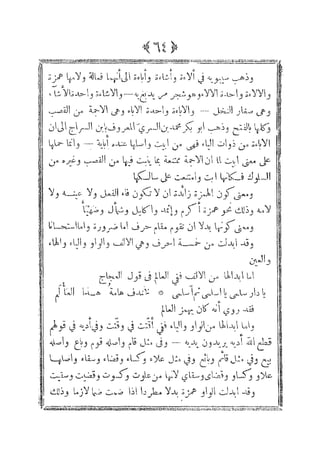 ﴿ ٦٤ ﴾
وذهب سيبويه في ألاءة وأشاءة وأباءة الى أنهما فعالة ولامها همزة
والالاءة واحدة الالاء وشجر مر يدبغ به — والاشاءة واحدة الاشاء،
وهى صغار النخل — والاباءة واحدة الاباء وهى الاجمة من القصب
وكلها بالفتح وذهب ابو بكر محمد بن السرى المعروف بابن السراج الى ان
الاباءة من ذوات الياء فهى من ابيت واصلها عنده أباية — وانما حملها
على معنى ابيت لما ان الاجمة ممتنعة بما ينبت فيها من القصب وغيره من
السلوك فكانها ابت وامتنعت على سالكها
ومعنى كون الهمزة زائدة ان لا تكون فاء الفعل ولا عينه ولا
لامه وذلك نحو همزة أكرم وإثمد واكليل وشمأل وضهيأ
ومعنى كونها بدلا ان تقوم مقام حرف اما ضرورة واما استحسانا
وقد ابدلت من خمسة احرف وهى الالف والواو والياء والهاء
والعين
اما ابدالها من الالف ففى العالم فى قول العجاج
يا دار سلمى يا اسلمى ثم أسلمى * فخندف هامة هذا العألم
فقد روى أنه كان يهمز العالم
واما ابدالها من الواو والياء ففى أقتت فى وقتت وفى أديه فى قولهم
قطع الله أديه يريدون يديه — وفى مثل قائم واصله قوم وبايع واصله
بيع وفى مثل قائم وبائع وفى مثل علاء وكساء وقضاء وسقاء واصلها
علاو وكساو وقضاى وسقاى لانها من علوت وكسوت وقضيت وسقيت
وقد ابدلت الواو همزة بدلا مطردا اذا ضمت ضما لازما وذلك